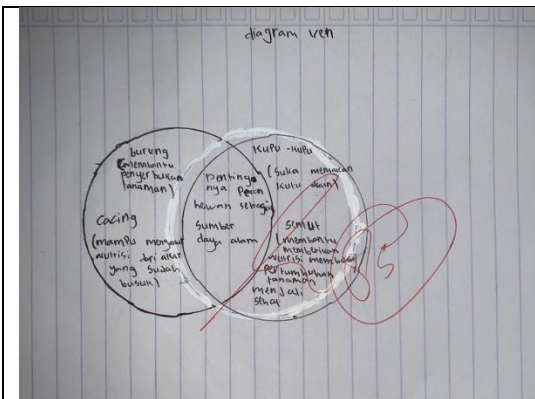 diagram ven
burung
(membantu
penyerbukan
tanaman)
cacing
(mampu mengawat
nutrisi dari akar
yang sudah
busuk)
penting
nya peran
hewan sebagai
sumber
daya alam
kupu-kupu
(suka memakan
kutu daun)
semut
(membantu
memberikan
nutrisi membuat
pertumbuhan
tanaman
menjadi
sehat
85